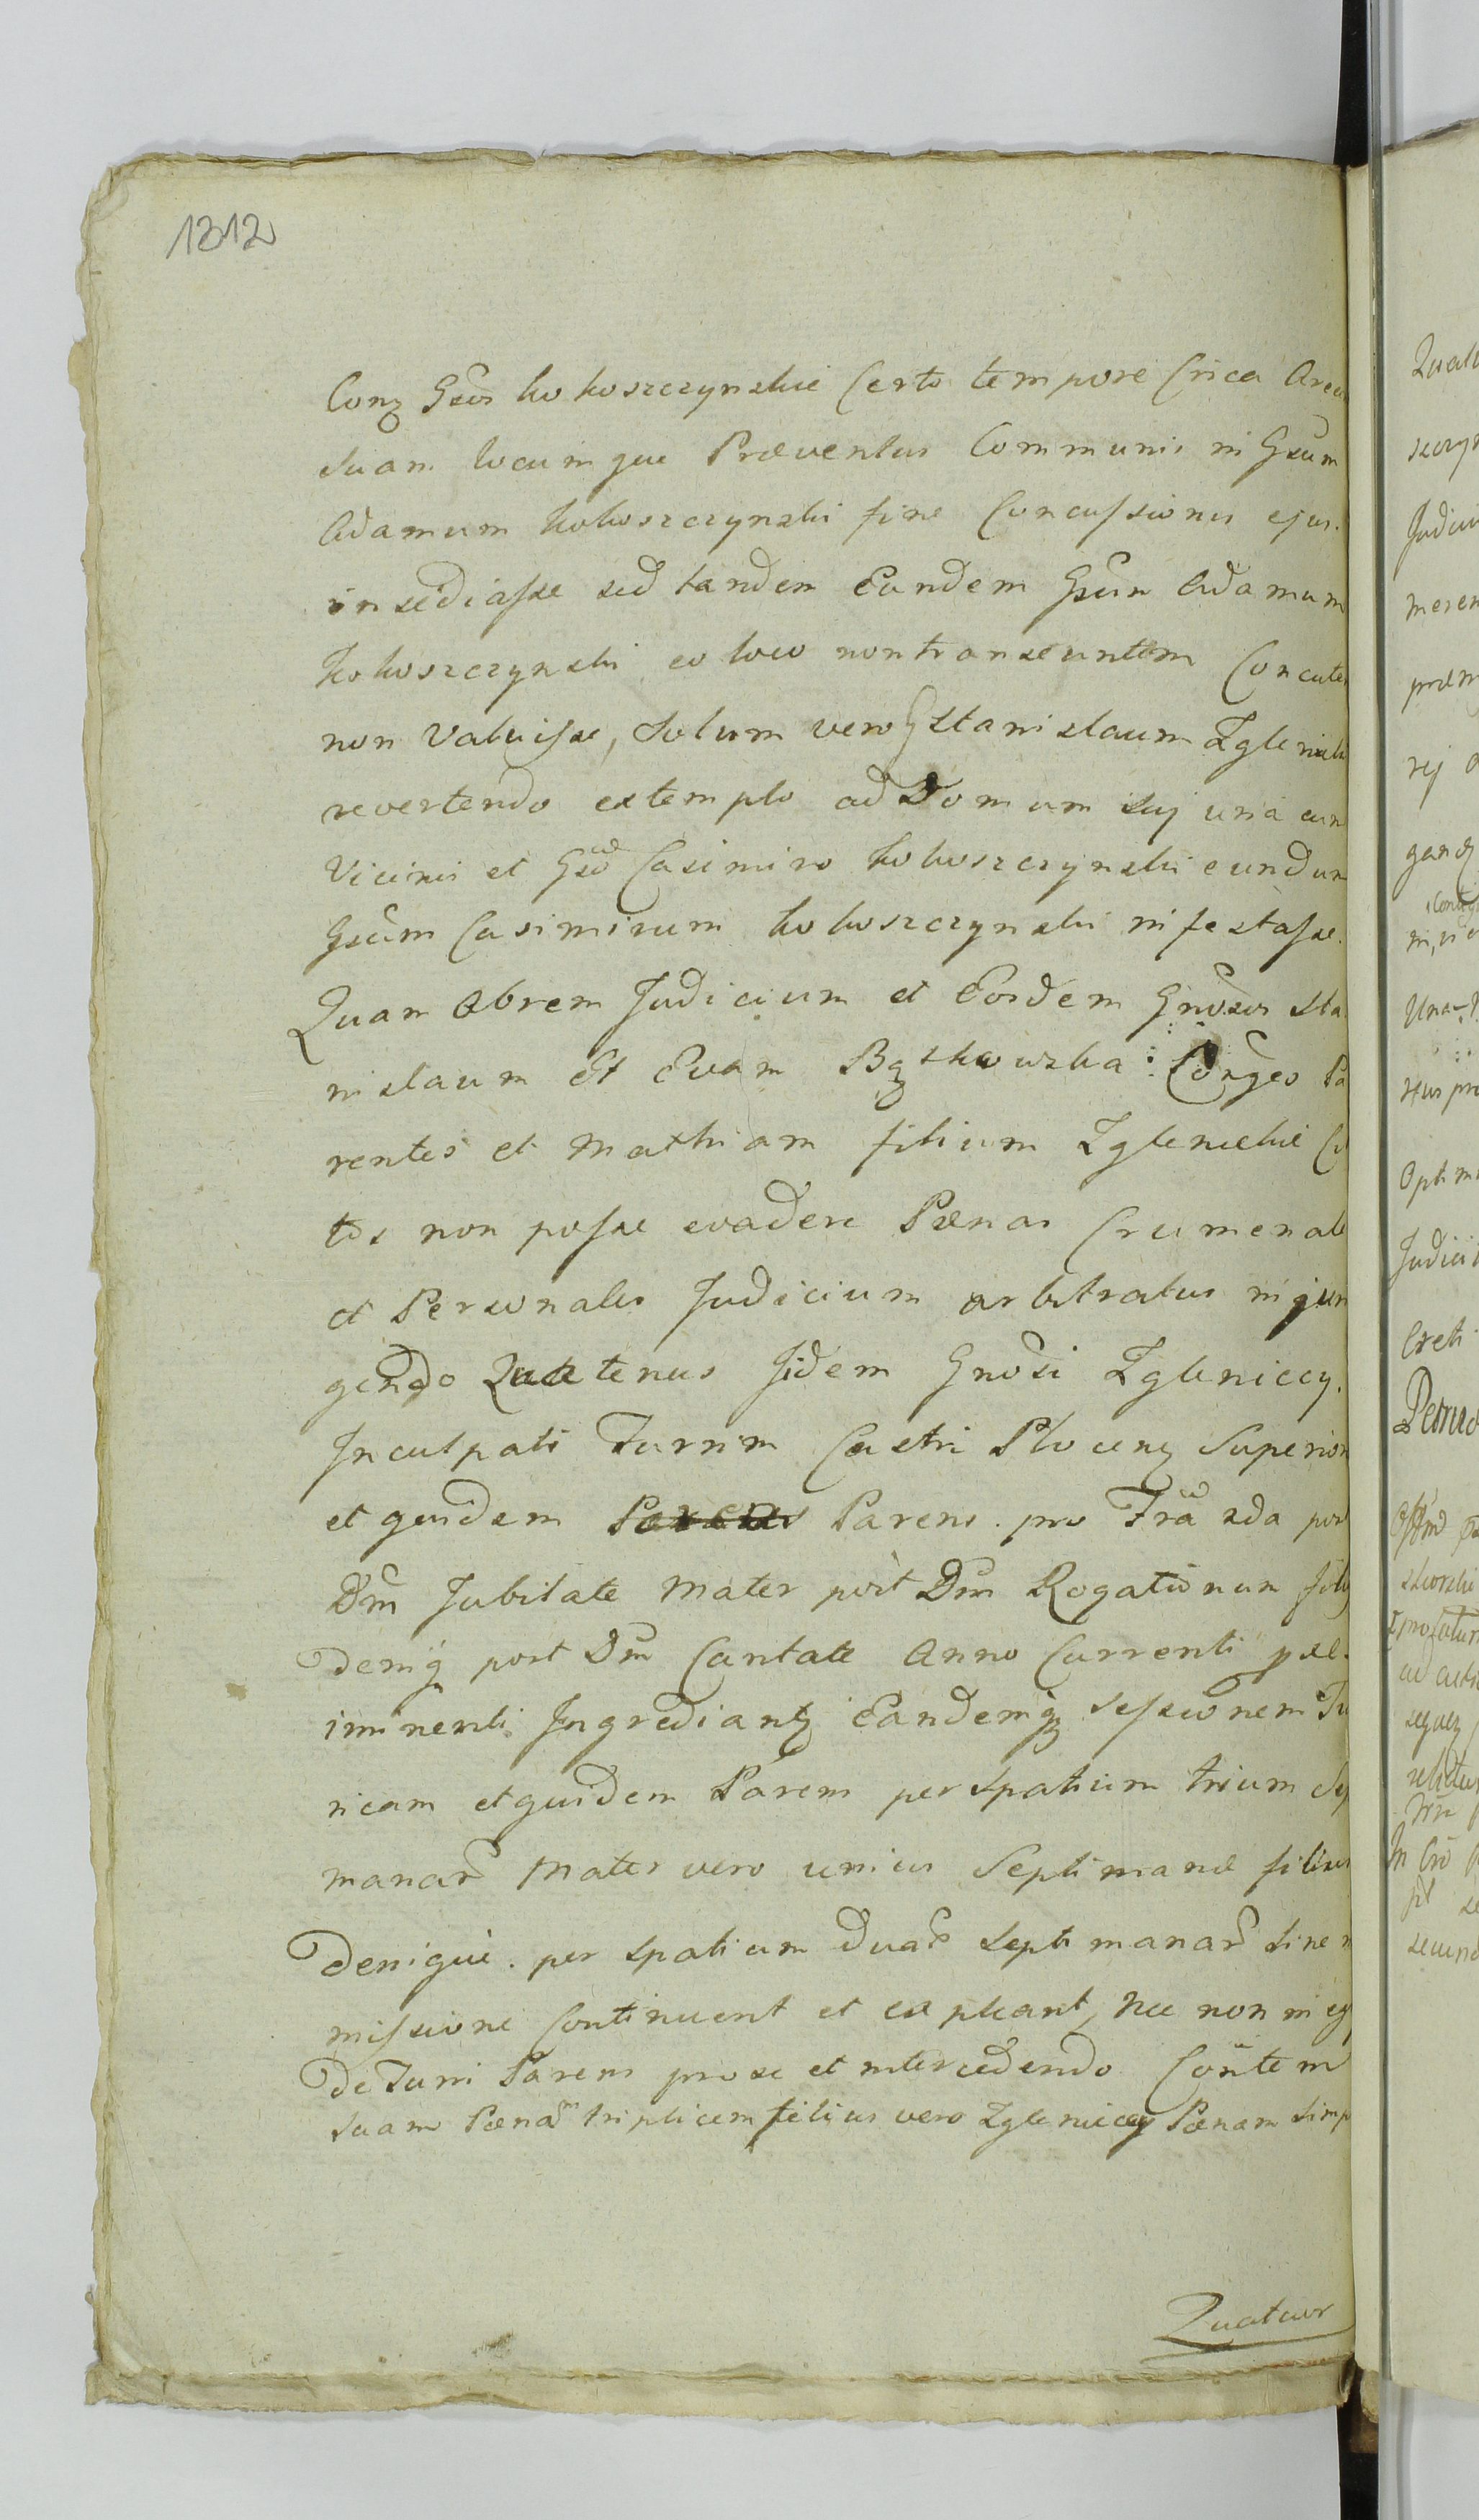 1312
Conz Gsos Kokoszczynskie Certo tempore Crica Area
suam locumque Præventus Communis in Gsum
Adamum Kokoszczynski fine Concussionis ejus.
insediasse sed tandem Eundem Gsum Adamum
Kokoszczynski eo loco non transeuntem Concute
non Valuisse, Solum vero G Stanislaum Zglenicki
revertendo extemplo ad Domum sui una cum
Vicinis et Gso Casimiro Kokoszczynski eundum
Gsum Casimirum Kokoszczynski infestasse.
Quam Obrem Judicium et Eosdem Gnosos Sta
nislaum Et Evam Bąskowska Conges Pa
rentes et Mathiam filium Zglenickie Ci
tos non posse evadere Pænas Crumenale
et Personales Judicium arbitratus injun
gendo Quatenus Jidem Gnosi Zgleniccy.
Inculpati Turrim Castri Plocenz Superiore
et quidem Parens Parens. pro Fra 2da post
Dm Jubilate Mater post Dm Rogationum fily
Demq post Dm Cantate Anno Currenti pæl.
iminenti Ingrediantz Eandemqz sessionem Tu
ricam et quidem Parens per Spatium trium Sep
manar Mater vero unius Septimanæ filius
Denique. per Spatium duar Septimanar sine
missione Continuent et expleant, Nec non in eg
De Turri Parens pro se et intercedendo Contem
suam Pænam triplicem filius vero Zgleniccy Pænam Simp
Quatuor
Judiciu
Optim
Judici